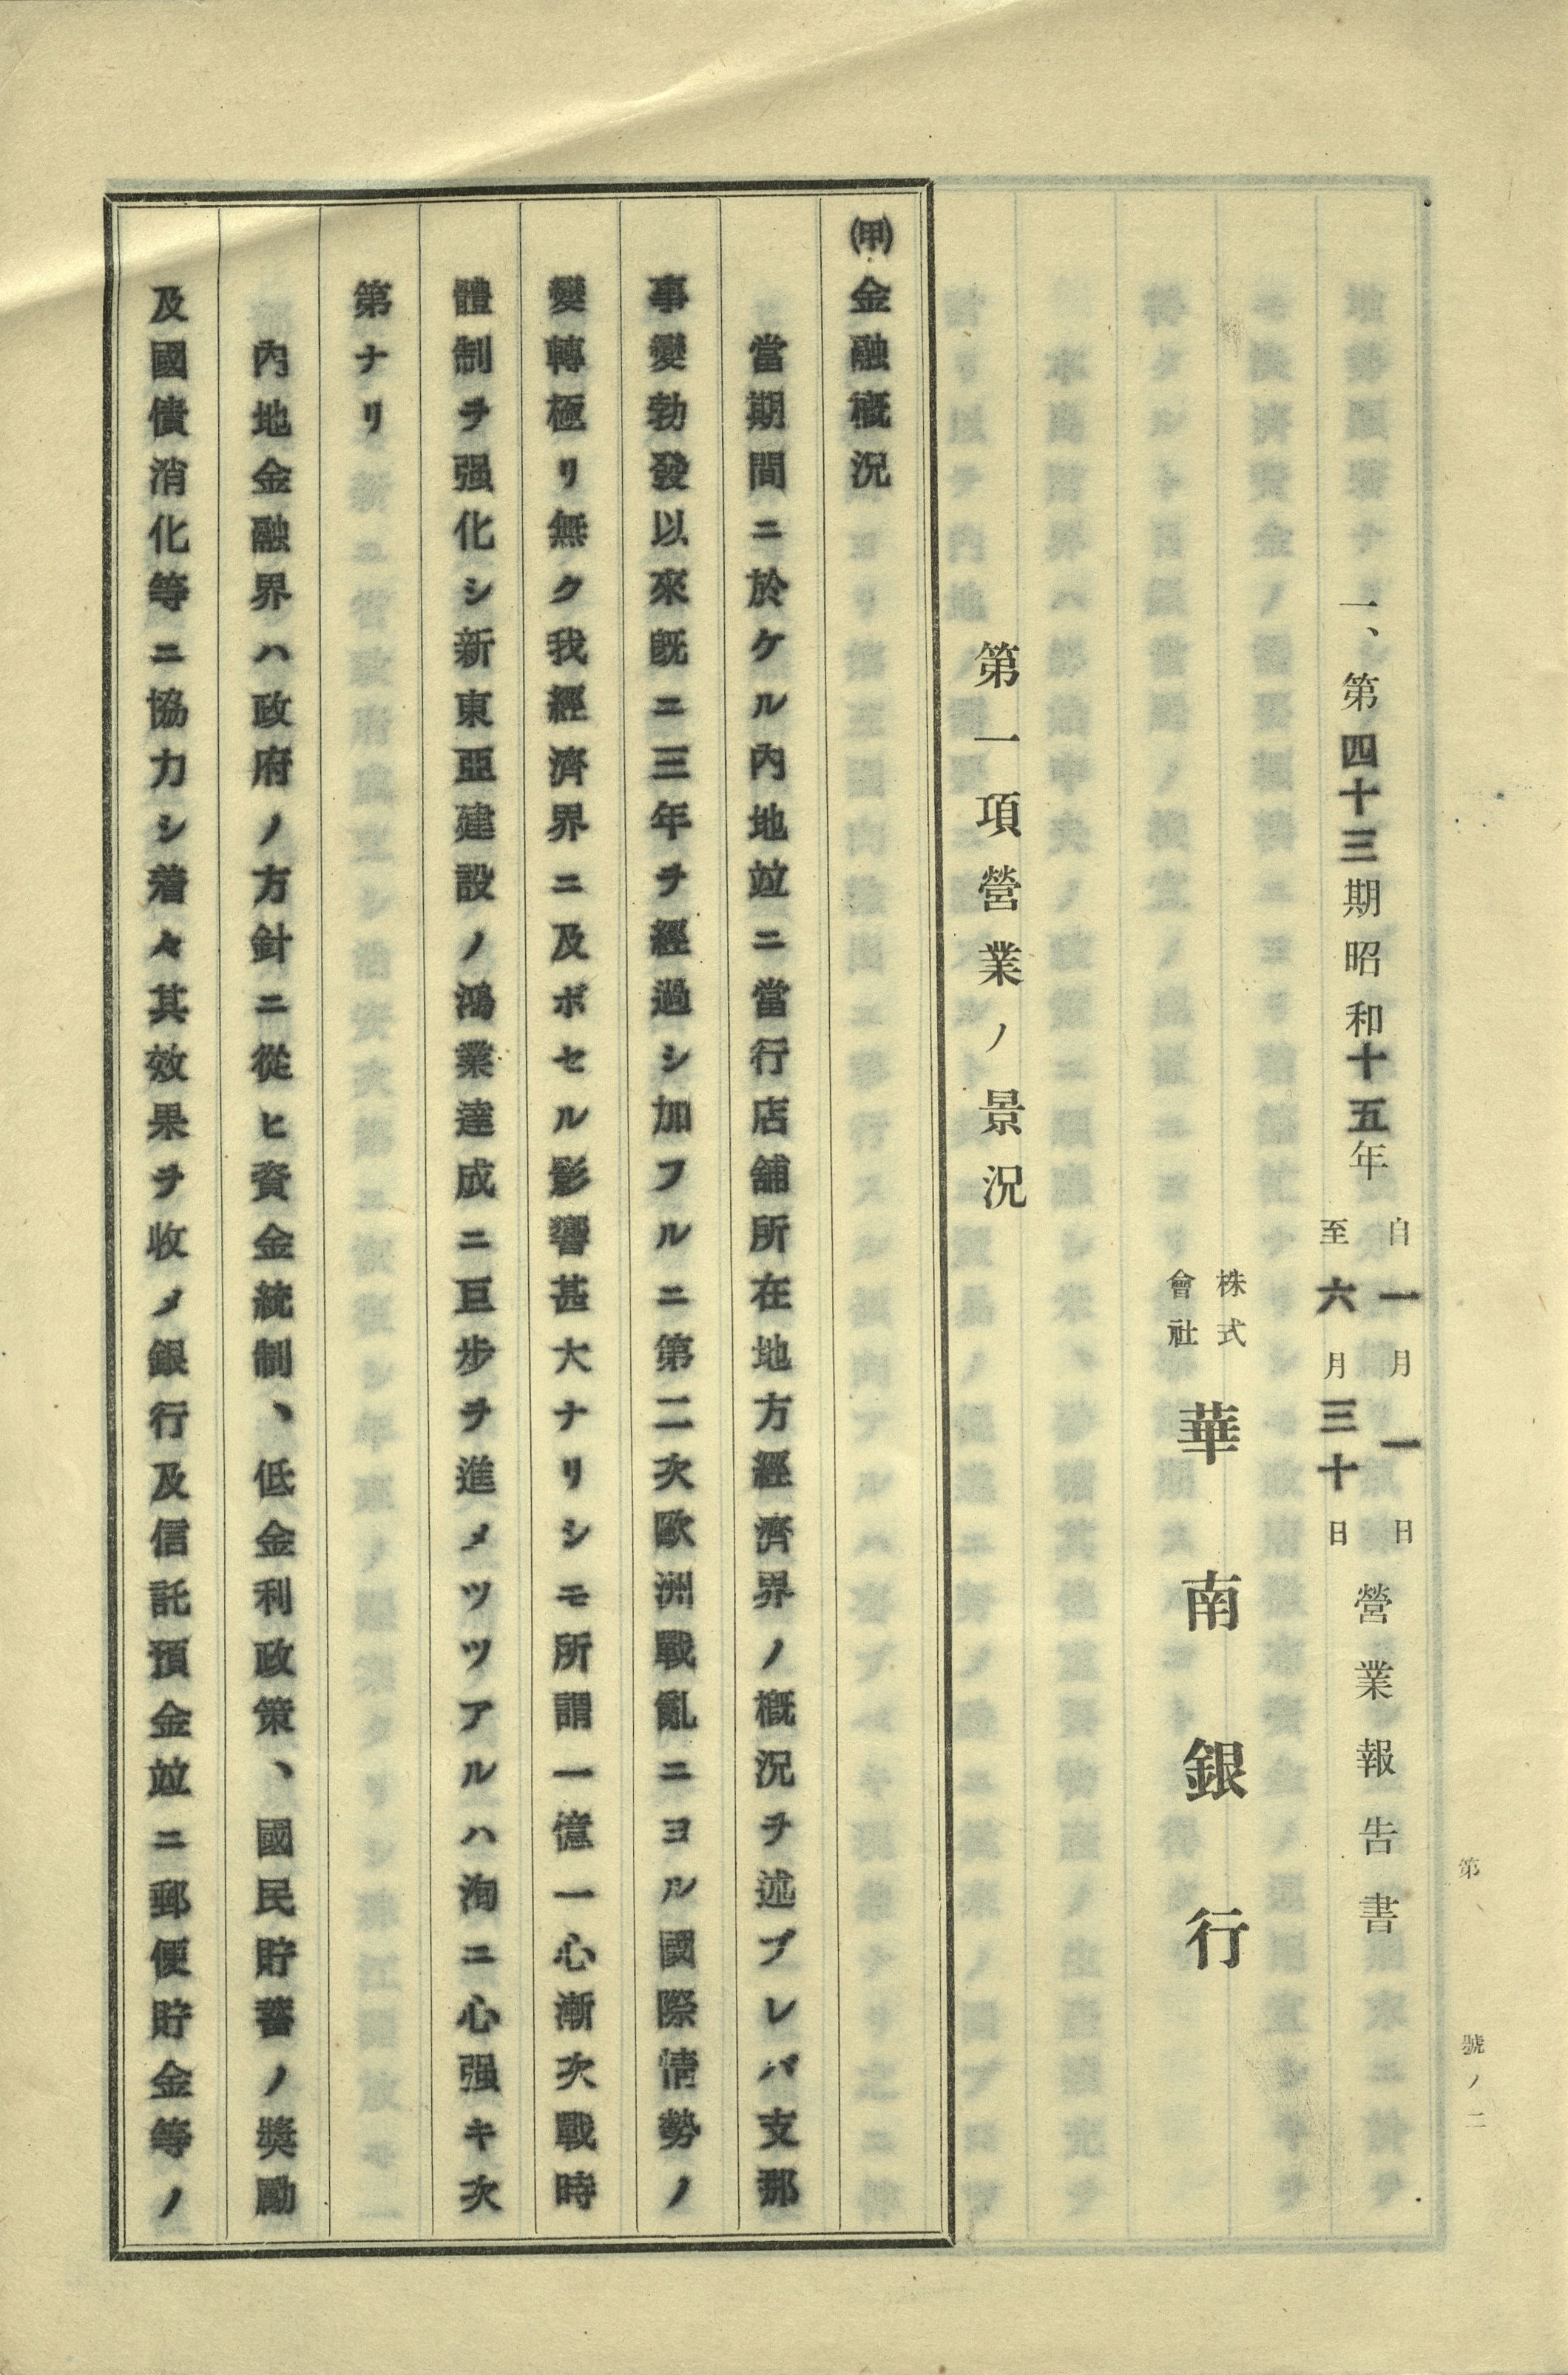 第 號ノ二
一、第四十三期昭和十五年自一月一日至六月三十日營業報告書
株式會社華南銀行
第一項營業ノ景況
㈙金融概況
當期間ニ於ケル內地竝ニ當行店舖所在地方經濟界ノ概況ヲ述ブレバ支那
事變勃發以來既ニ三年ヲ經過シ加フルニ第二次歐洲戰亂ニヨル國際情勢ノ
變轉極リ無ク我經濟界ニ及ボセル影響甚大ナリシモ所謂一億一心漸次戰時
體制ヲ强化シ新東亞建設ノ鴻業達成ニ巨步ヲ進メツツアルハ洵ニ心强キ次
第ナリ
內地金融界ハ政府ノ方針ニ從ヒ資金統制、低金利政策、國民貯蓄ノ奬勵
及國債消化等ニ協力シ着々其效果ヲ收メ銀行及信託預金竝ニ郵便貯金等ノ